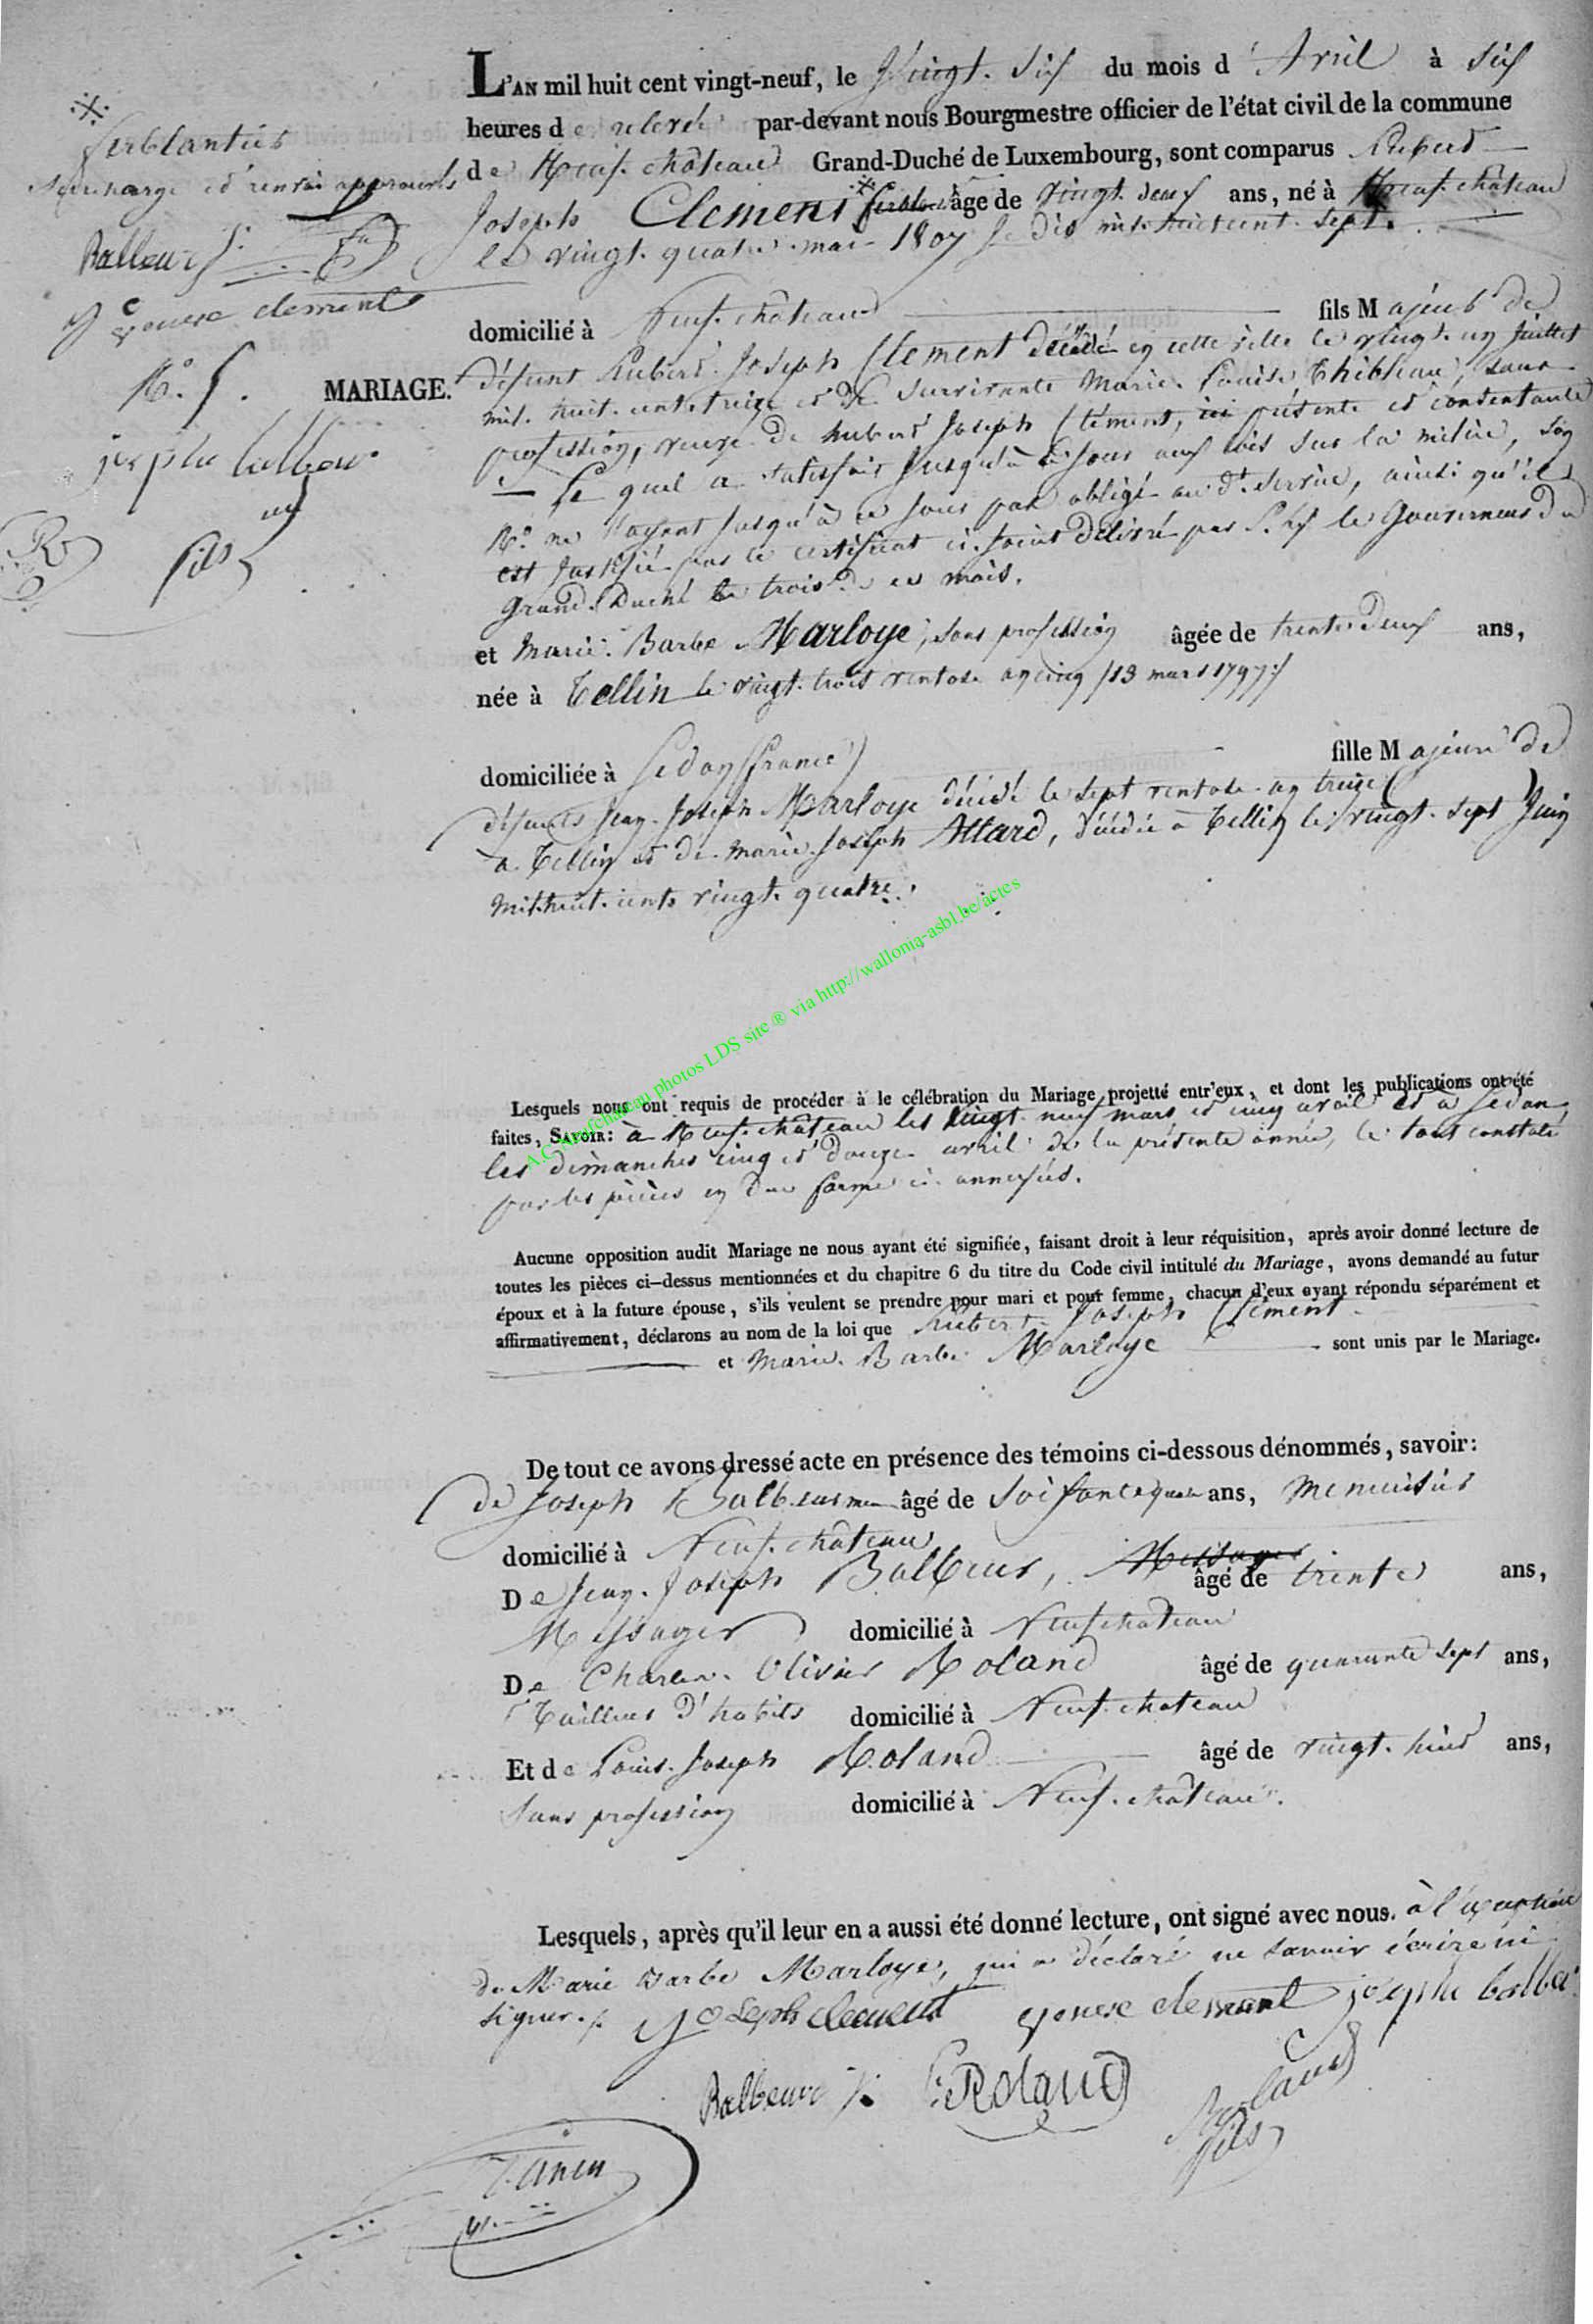 L'AN mil huit cent vingt-neuf, le vingt. six du mois d' Avril à six
heures de relevée par-devant nous Bourgmestre officier de l'état civil de la commune
de Neuf. château Grand-Duché de Luxembourg, sont comparus hubert
Joseph Clement âge de vingt. deux ans, né à Neuf. château
le vingt. quatre. mai 1807 dis mil. huit cent. sept.
※
ferblantier
surcharge et renvoi approuvés
Balbeur j.
veuve clement
N.° 5.
MARIAGE.
joseph balbeur
fils
domicilié à Neuf. château fils Majeur de
défunt hubert. Joseph Clement décédé en cette ville le vingt. un Juillet
mil. huit. cent. treize et de survivante Marie. Louise Thibleau, sans
profession, veuve de hubert Joseph Clément, présente et consentante
— Le quel a satisfait jusqu'à ce jour aux lois sur la milice, son
N.° ne l'ayant jusqu'à ce jour pas obligé au dt. service, ainsi qu'il
est justifié par le certificat ci. joint délivré par S. Ex le Gouverneur du
Grand. Duché le trois de ce mois.
et Marie. Barbe Marloye, sans profession âgée de trente. deux ans,
née à Tellin le vingt. trois ventose an cinq /13 mars 1797:/
domiciliée à Sedan (france) fille Majeure de
défunts Jean. Joseph Marloye décédé le sept ventose. an treize
a Tellin et de marie. Joseph Allard, décédée à Tellin le vingt. sept Juin
mil. huit. cents vingt. quatre.
A.C. Neufchateau photos LDS site ® via http://wallonia-asbl.be/actes
Lesquels nous ont requis de procéder à le célébration du Mariage projetté entr'eux, et dont les publications ont été
faites, SAVOIR: à Neuf. château les vingt. neuf mars et cinq avril et à Sedan,
les dimanches cinq et douze avril de la présente année, le tout constaté
par les pièces en due forme ci. annexées.
Aucune opposition audit Mariage ne nous ayant été signifiée, faisant droit à leur réquisition, après avoir donné lecture de
toutes les pièces ci-dessus mentionnées et du chapitre 6 du titre du Code civil intitulé du Mariage, avons demandé au futur
époux et à la future épouse, s'ils veulent se prendre pour mari et pour femme, chacun d'eux ayant répondu séparément et
affirmativement, déclarons au nom de la loi que hubert. Joseph Clément
et Marie. Barbe Marloye sont unis par le Mariage.
De tout ce avons dressé acte en présence des témoins ci-dessous dénommés, savoir:
de Joseph Balbeur âgé de soixante quatre ans, menuisier
domicilié à Neuf. château
De Jean. Joseph Balbeur, Messager âgé de trente ans,
Messager domicilié à Neufchateau
De Charles. Olivier Roland âgé de quarante sept ans,
Tailleur d'habits domicilié à Neuf. chateau
Et de Louis. Joseph Roland âgé de vingt. huit ans,
Sans profession domicilié à Neuf. château.
Lesquels, après qu'il leur en a aussi été donné lecture, ont signé avec nous. à l'exception
de Marie Barbe Marloye, qui a déclaré ne savoir écrire ni
signer. Joseph clement veuve clement joseph balbe
Balbeur j. Roland Roland
fils